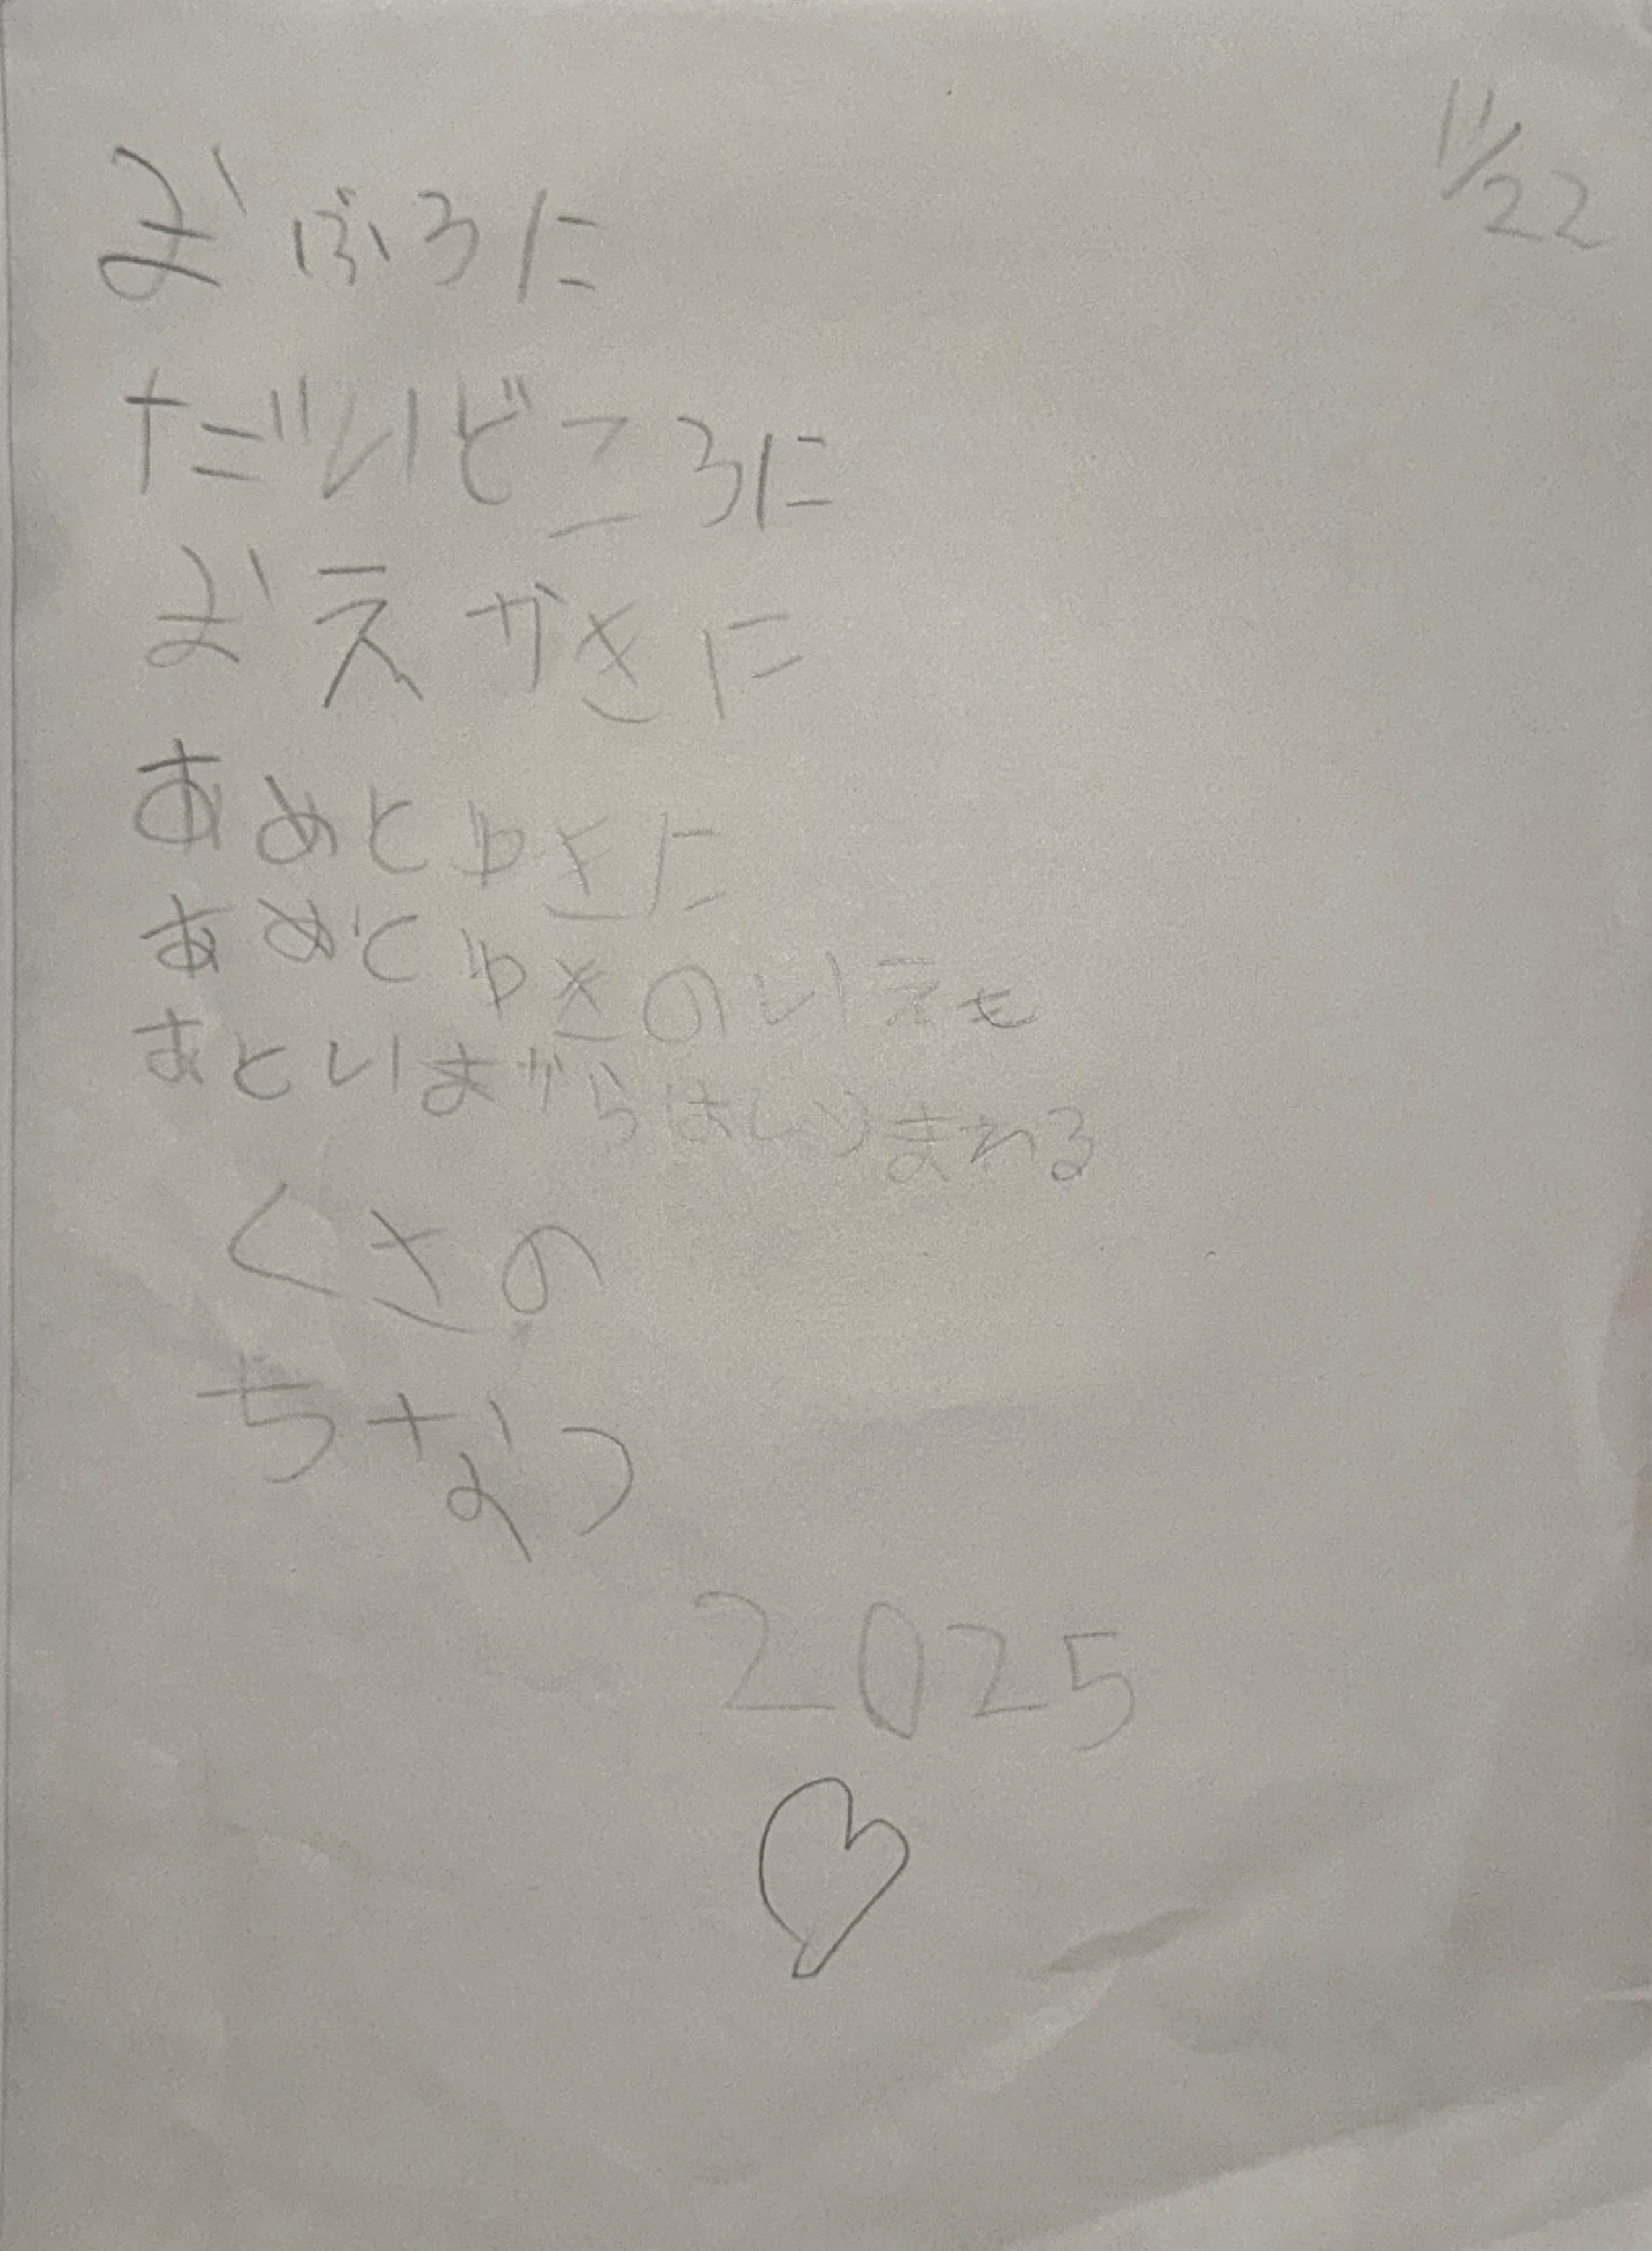 11/22
おふろに
だいどころに
おえかきに
あめとゆきに
あめとゆきのいえも
あといまからはしりまわる
くさの
ちなつ
2025